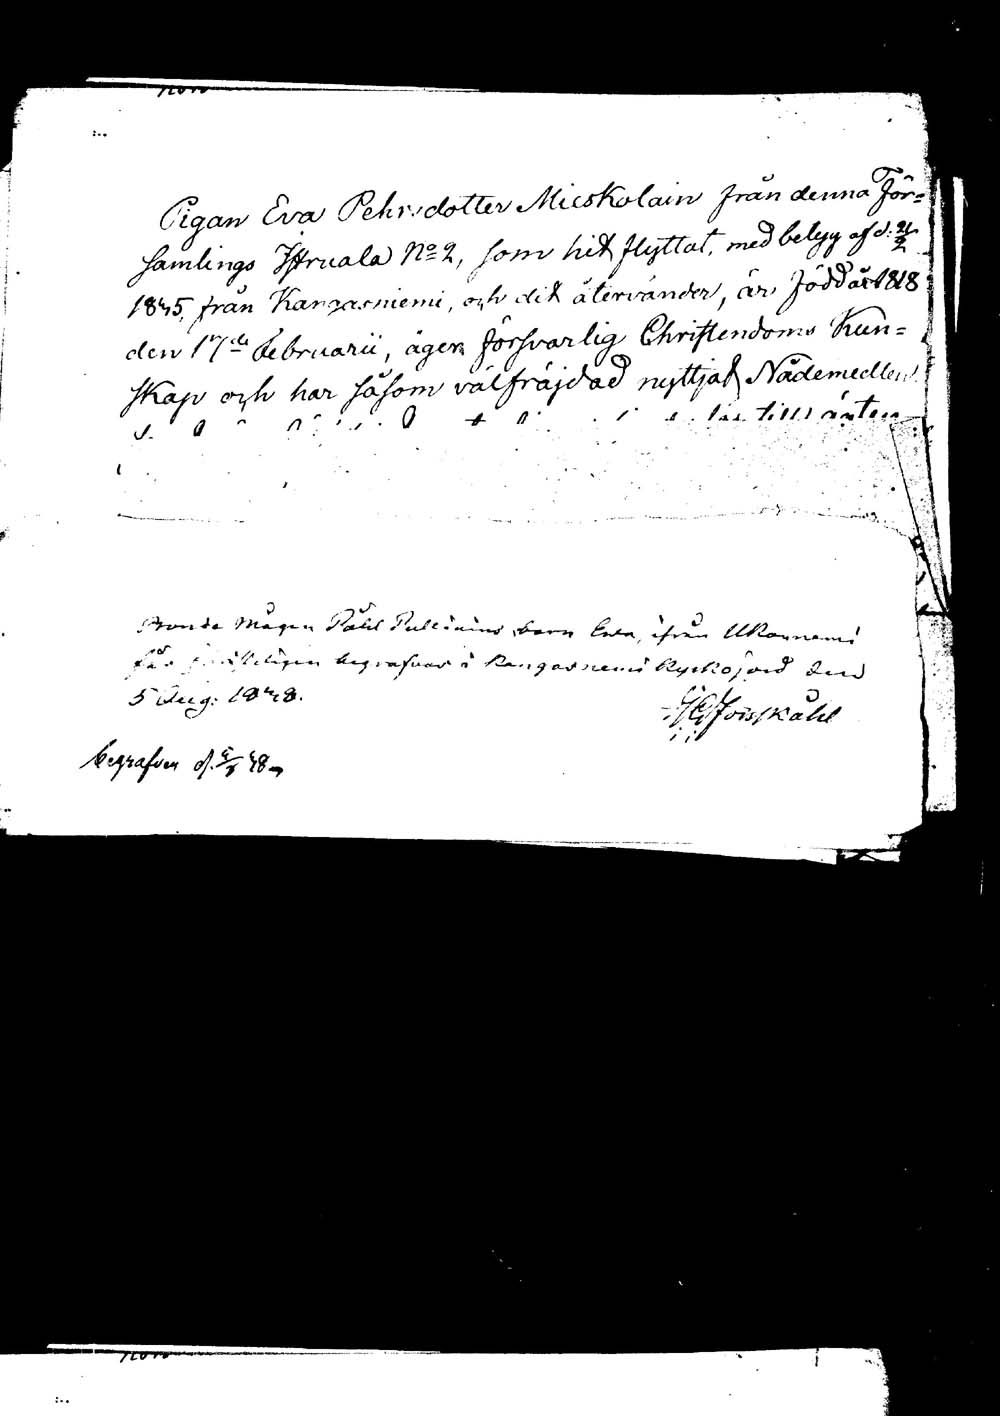 Pigan Eva Pehrsdotter Mieskolain från denna För=
samlings No 2, som hit flyttat, med betyg af d. 21/2
1845, från Kangasniemi, och dit återvänder, är född år 1818
den 17de Februarii, äger försvarlig Christendoms Kun=
skap och har såsom välfräjdad nyttjat Nådemedlen
Bonde Mågen Påhl Pulliains barn Eva, ifrån Ukonniemi
får begrafvas i Kangasniemi Kyrkojord den
5 Aug. 1848.
begrafven d. 48